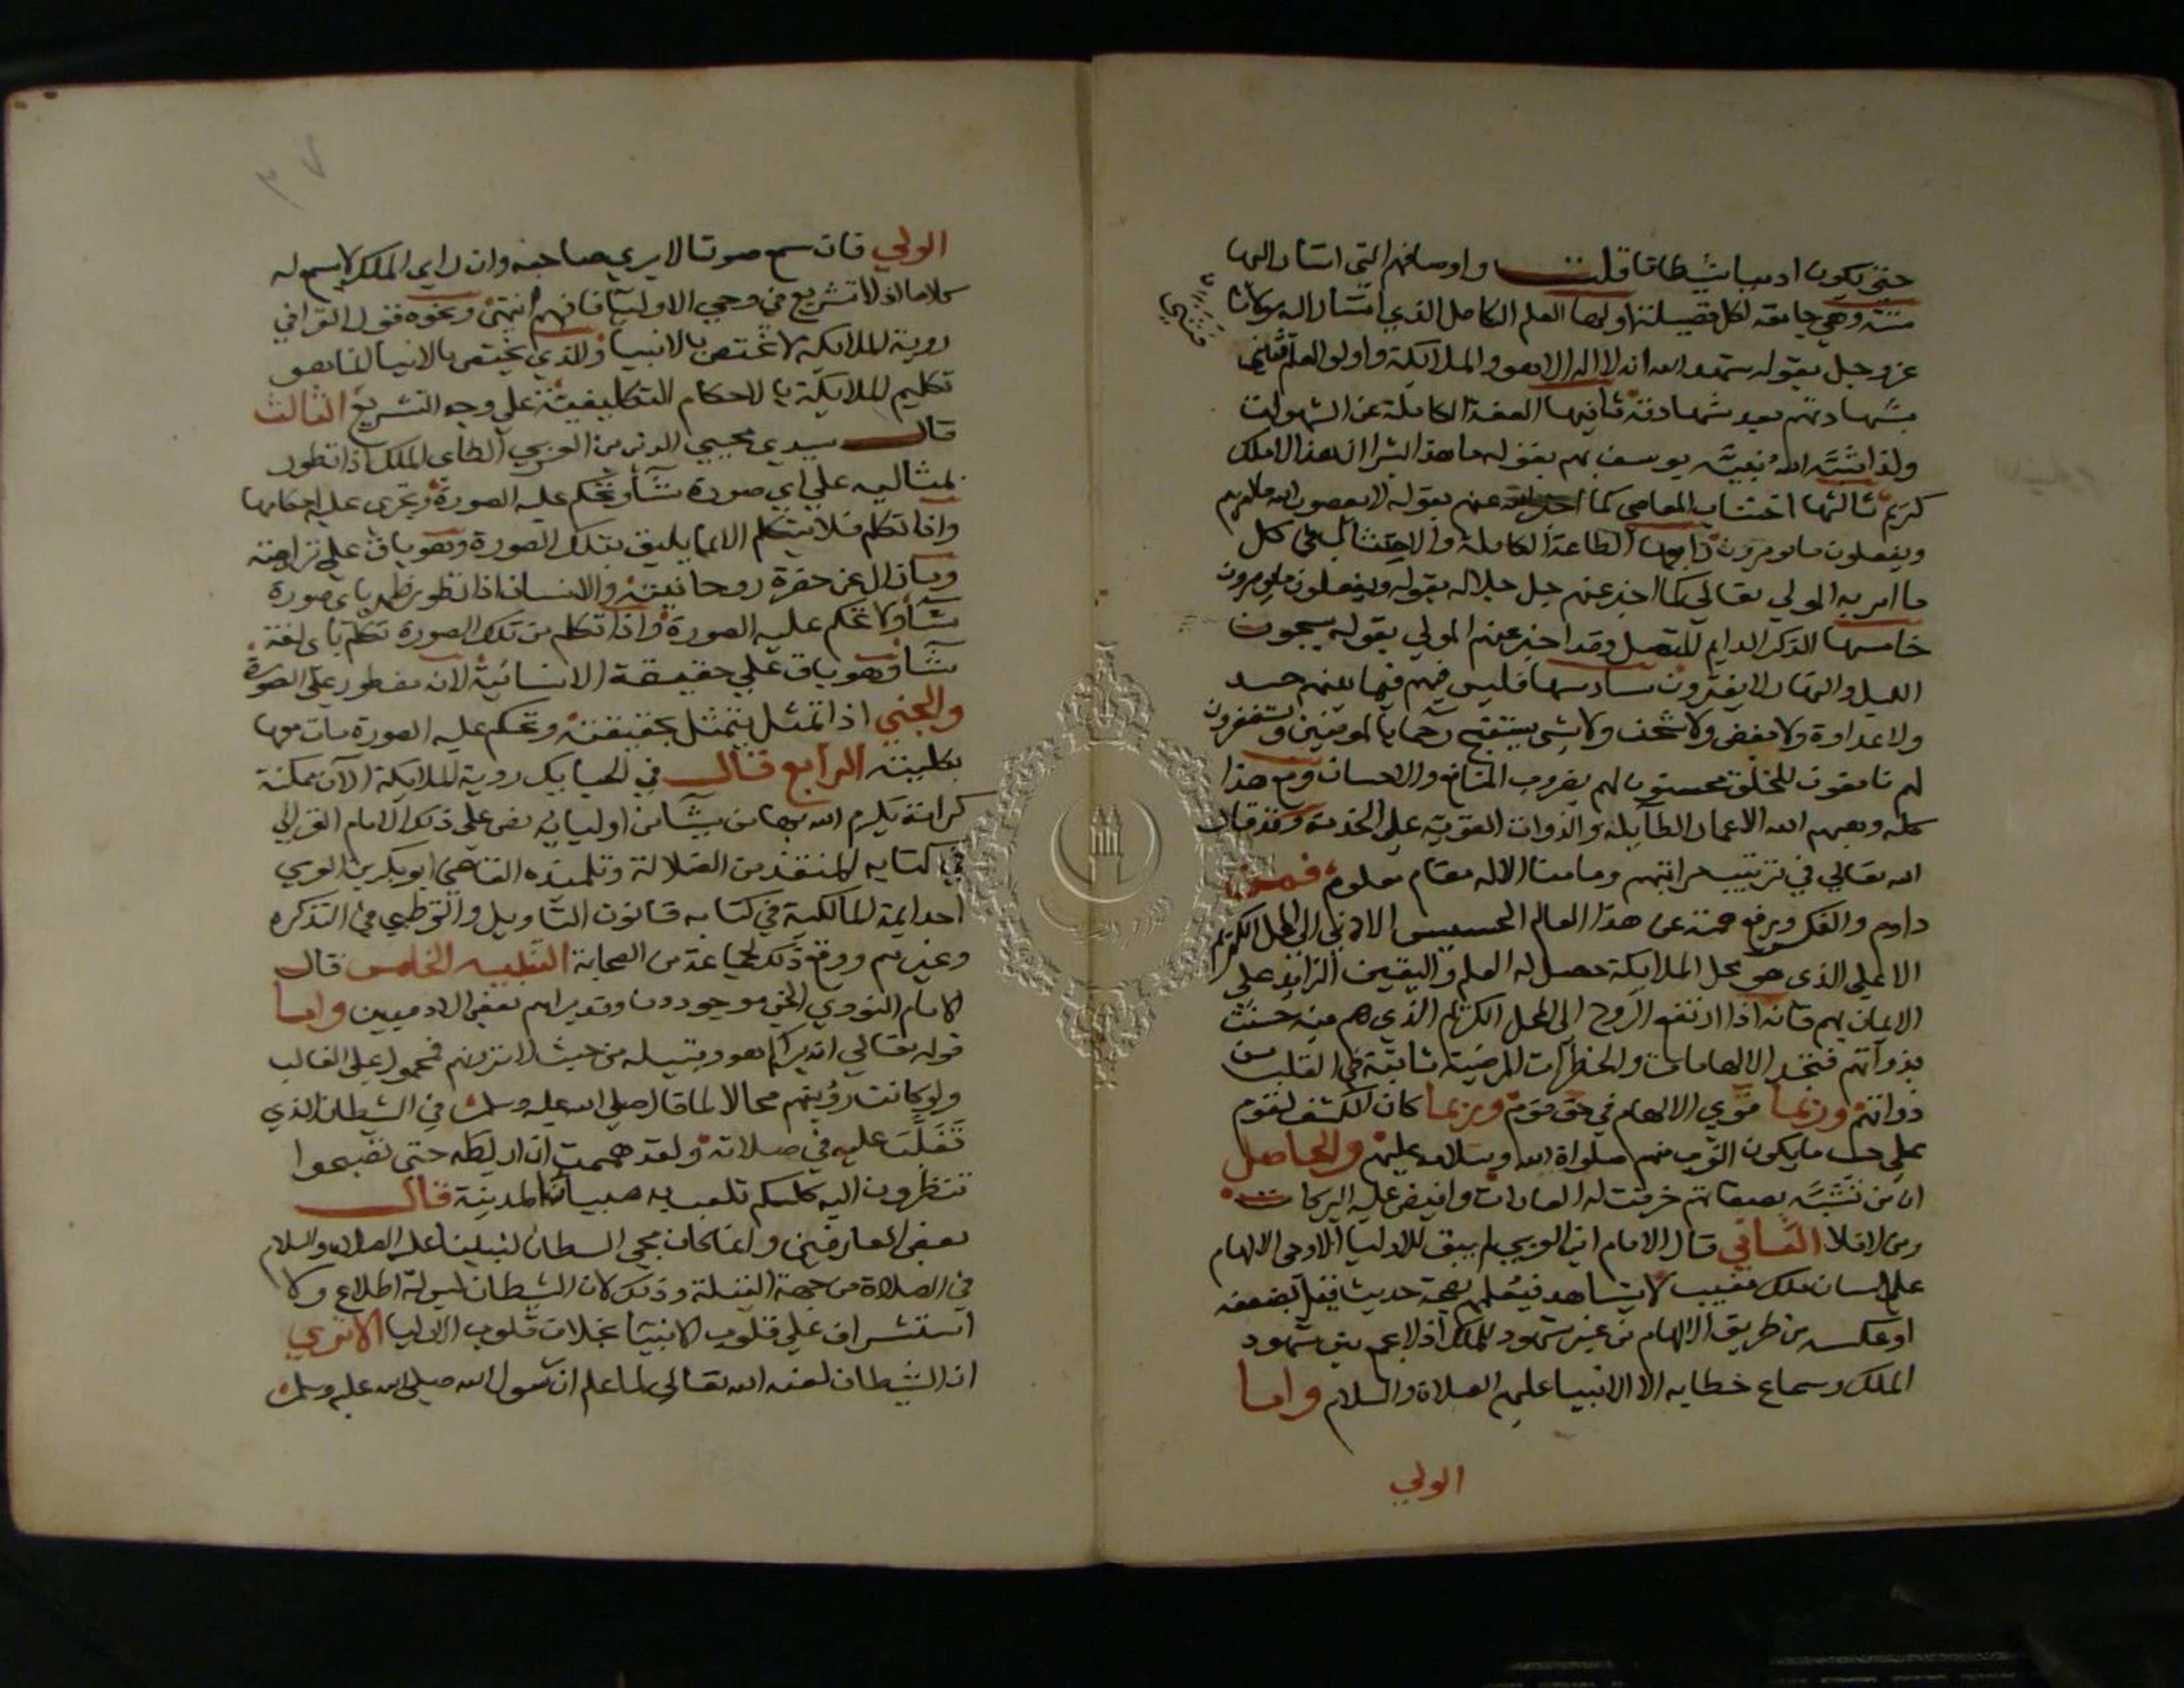 حتى يكون اديبا شيطانا قلت واوصافهم التي اشار اليها
ستة وهي جامعة لكل فضيلة اولها العلم الكامل الذي اشار اليه مولانا
عز وجل بقوله شهد الله انه لا اله الا هو والملايكة واولو العلم
بشهادتهم بعد شهادته ثانيها العفة الكاملة عن الشهوات
ولذا شبه الله نبيه يوسف بهم بقوله ما هذا بشرا ان هذا الا ملك
كريم ثالثها اجتناب المعاصي كما اخبر عنهم بقوله لا يعصون الله ما امرهم
ويفعلون ما يومرون رابعها الطاعة الكاملة والامتثال في كل
ما امر به المولى تعالي كما اخبر عنهم جل جلاله بقوله ويفعلون ما يومرون
خامسها الذكر الدايم المتصل وقد اخبر عنهم المولي بقوله يسبحون
الليل والنهار لا يفترون سادسها فليس فيهم فيما بينهم حسد
ولا عداوة ولا بغض ولا شحنا ولا شي يستقبح رحما بالمومنين ويستغفرون
لهم نافعون للخلق محسنون لهم بضروب المنافع والاحسان ومع هذا
كله وهبهم الله الاعمار الطايلة والذوات القوية على الخدمة وقد قال
الله تعالي في ترتيب مراتبهم وما منا الا له مقام معلوم فمن
داوم والفكر ويرفع همته عن هذا العالم الخسيس الادني الى المحل الكريم
الاعلي الذي هو محل الملايكة حصل له العلم واليقين الزايد على
الايمان بهم فانه اذا ارتفع الروح الى المحل الكريم الذي هم فيه حسنت
بذواتهم فتجد الالهامات والخطرات المرضية ثابتة في القلب من
ذواتهم وربما قوي الالهام في حق قوم وربما كان الكشف لقوم
على حسب ما يكون القرب منهم صلوات الله وسلامه عليهم والحاصل
ان من تشبه بصفاتهم خرقت له العادات وافيض عليه البركات
ومن لا فلا الثاني قال الامام ابن العربي لم يبق للاوليا الا وحي الالهام
على لسان ملك مغيب لا يشاهد فيعلمهم بصحة حديث قيل بضعفه
او عكسه من طريق الالهام من غير شهود للملك اذ لا يجمع بين شهود
الملك وسماع خطابه الا الانبيا عليهم الصلاة والسلام واما
الولي
الولي فان سمع صوتا لا يري صاحبه وان راي الملك لا يسمع له
كلاما اذ لا تشريع في وحي الاوليا فافهم انتهى ونحوه قول القرافي
روية الملايكة لا تختص بالانبيا والذي يختص بالانبيا انما هو
تكليم الملايكة بالاحكام التكليفية على وجه التشريع الثالث
قال سيدي محيي الدين بن العربي الطاي الملك اذا تطور
بمثاليه على اي صورة شا وتحكم عليه الصورة وتجري عليه احكامها
واذا تكلم فلا يتكلم الا بما يليق بتلك الصورة وهو باق على نزاهته
وما زال عن حضرة روحانيته والانسان اذا تطور ظهر باى صورة
شا ولا تحكم عليه الصورة واذا تكلم من تلك الصورة تكلم باى لغة
شا وهو باق علي حقيقة الانسانية لانه مفطور على الصورة
والجني اذا تمثل يتمثل بحقيقته وتحكم عليه الصورة مات موتها
بكليته الرابع قال في الحبايك روية الملايكة الآن ممكنة
كرامة يكرم الله بها من يشا من اوليايه نص على ذلك الامام الغزالي
في كتابه المنقذ من الضلالة وتلميذه القاضي ابو بكر بن العربي
احد ايمة المالكية في كتابه قانون التاويل والقرطبي في التذكره
وغيرهم ووقع ذلك لجماعة من الصحابة التنبيه الخامس قال
الامام النووي الجن موجودون وقد يراهم بعض الادميين واما
قوله تعالي انه يراكم هو وقبيله من حيث لا ترونهم فمحمول على الغالب
ولو كانت رؤيتهم محالا لما قال صلى الله عليه وسلم في الشيطان الذي
تفلت عليه في صلاته ولقد هممت ان اربطه حتى تصبحوا
تنظرون اليه كلكم تلعب به صبيان المدينة قال
بعض العارفين وانما كان مجي الشيطان لنبينا عليه الصلاة والسلام
في الصلاة من جهة القبلة وذلك لان الشيطان ليس له اطلاع ولا
استشراف علي قلوب الانبيا بخلاف قلوب الاوليا الا تري
ان الشيطان لعنه الله تعالى لما علم ان رسول الله صلى الله عليه وسلم